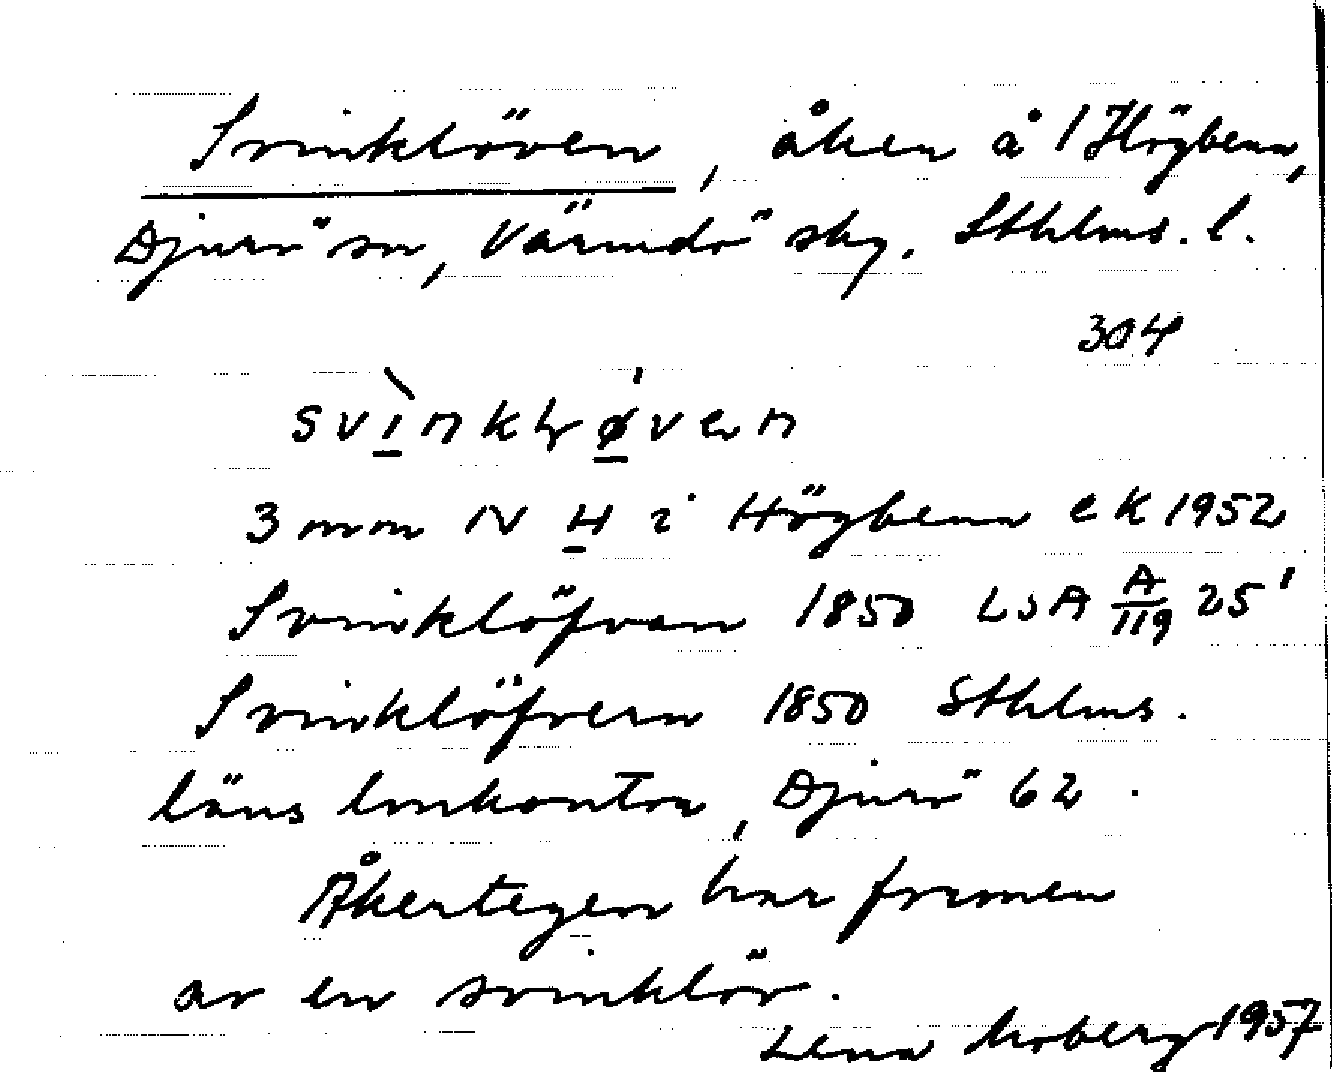 Svinklöven, åker å 1 Högbenn,
Djurö sn, Värmdö sky. Sthlms. l.
304
svìnklǿven
3 mm N H i Högbenn ek 1952
Svinklöfvan 1850 LSA A/119 25¹
Svinklöfvern 1850 Sthlms.
läns lmkontor, Djurö 62.
Åkertegen har formen
av en svinklöv.
Lena Moberg 1957